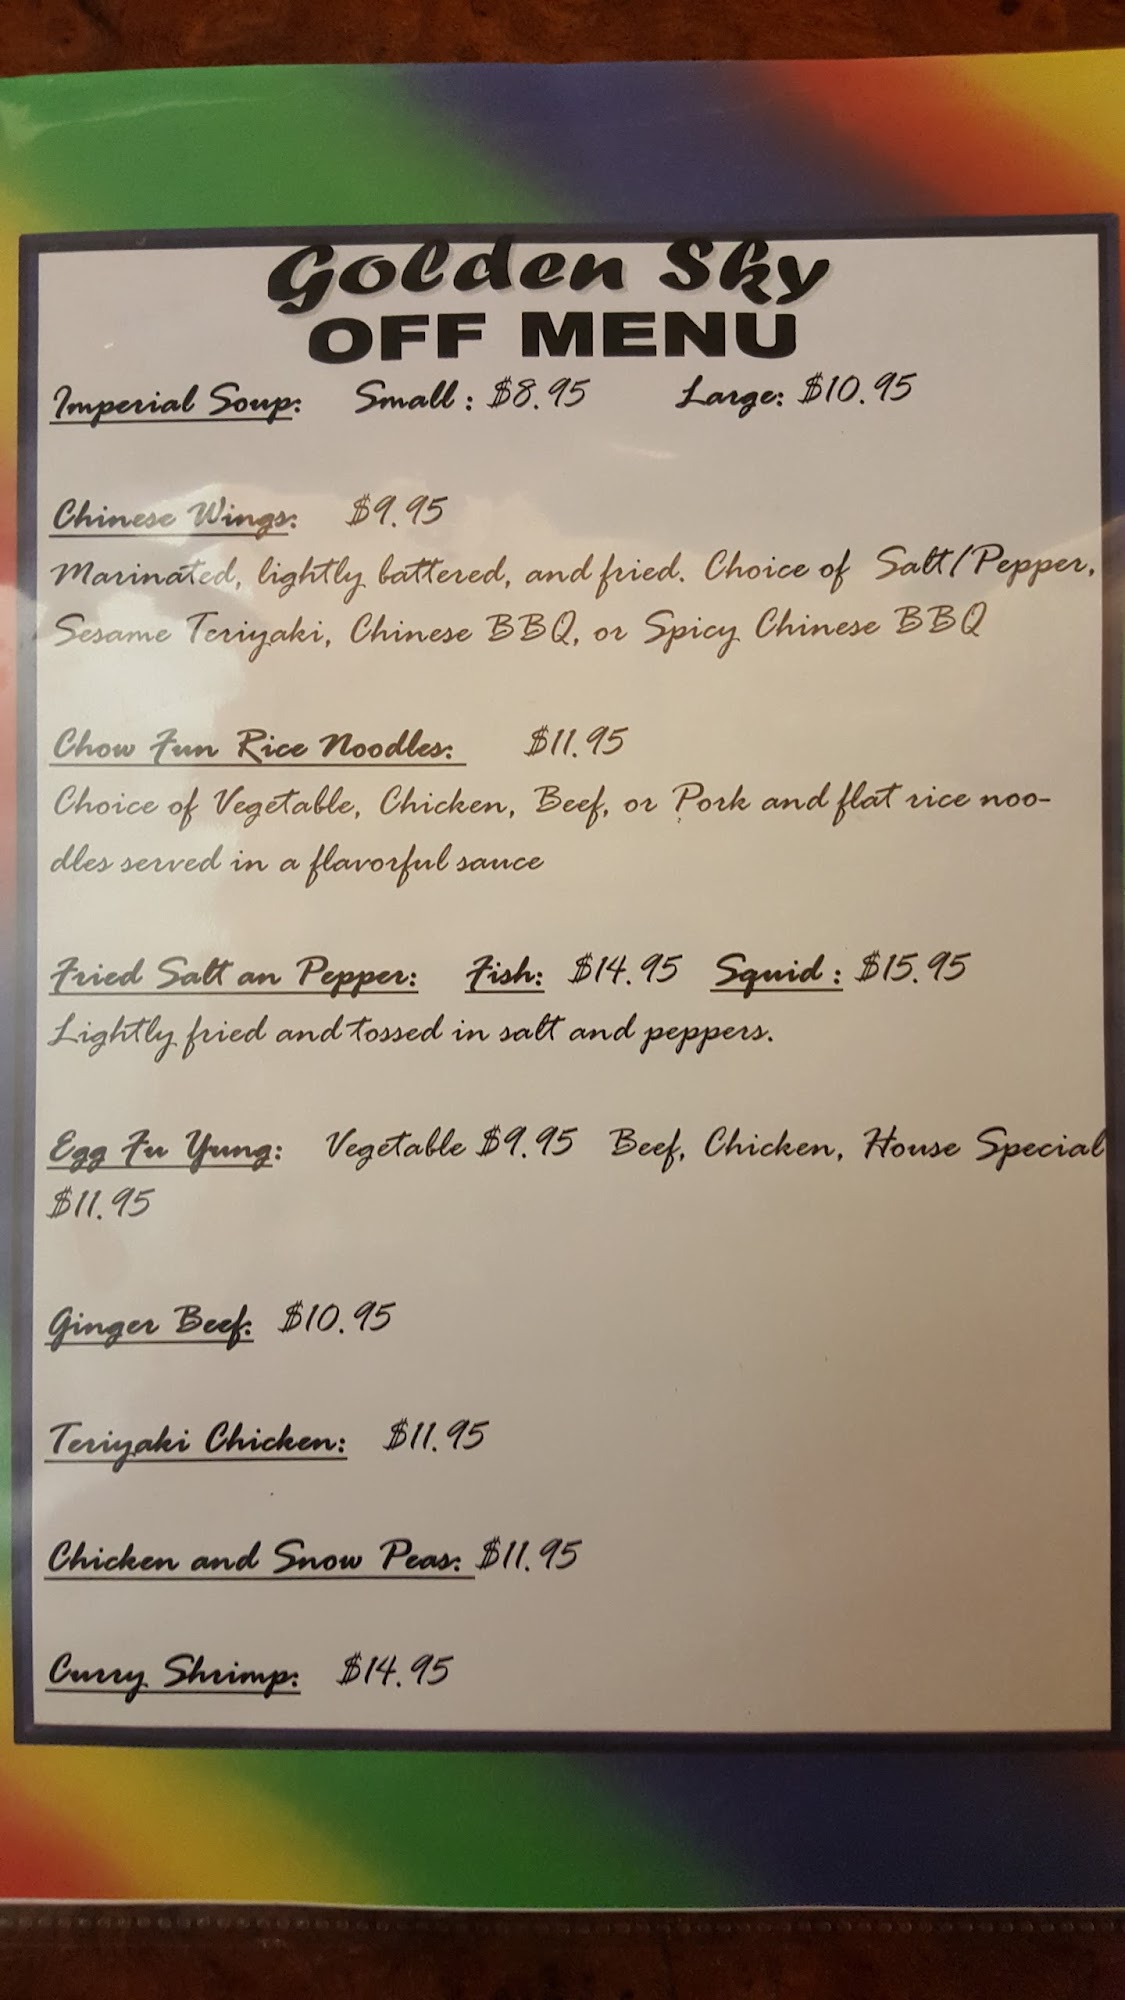 Golden Sky
OFF MENU
Imperial Soup: Small : $8.95 Large: $10.95
Chinese Wings: $9.95
Marinated, lightly battered, and fried. Choice of Salt/Pepper,
Sesame Teriyaki, Chinese BBQ, or Spicy Chinese BBQ
Chow Fun Rice Noodles: $11.95
Choice of Vegetable, Chicken, Beef, or Pork and flat rice noo-
dles served in a flavorful sauce
Fried Salt an Pepper: Fish: $14.95 Squid : $15.95
Lightly fried and tossed in salt and peppers.
Egg Fu Yung: Vegetable $9.95 Beef, Chicken, House Special
$11.95
Ginger Beef: $10.95
Teriyaki Chicken: $11.95
Chicken and Snow Peas: $11.95
Curry Shrimp: $14.95